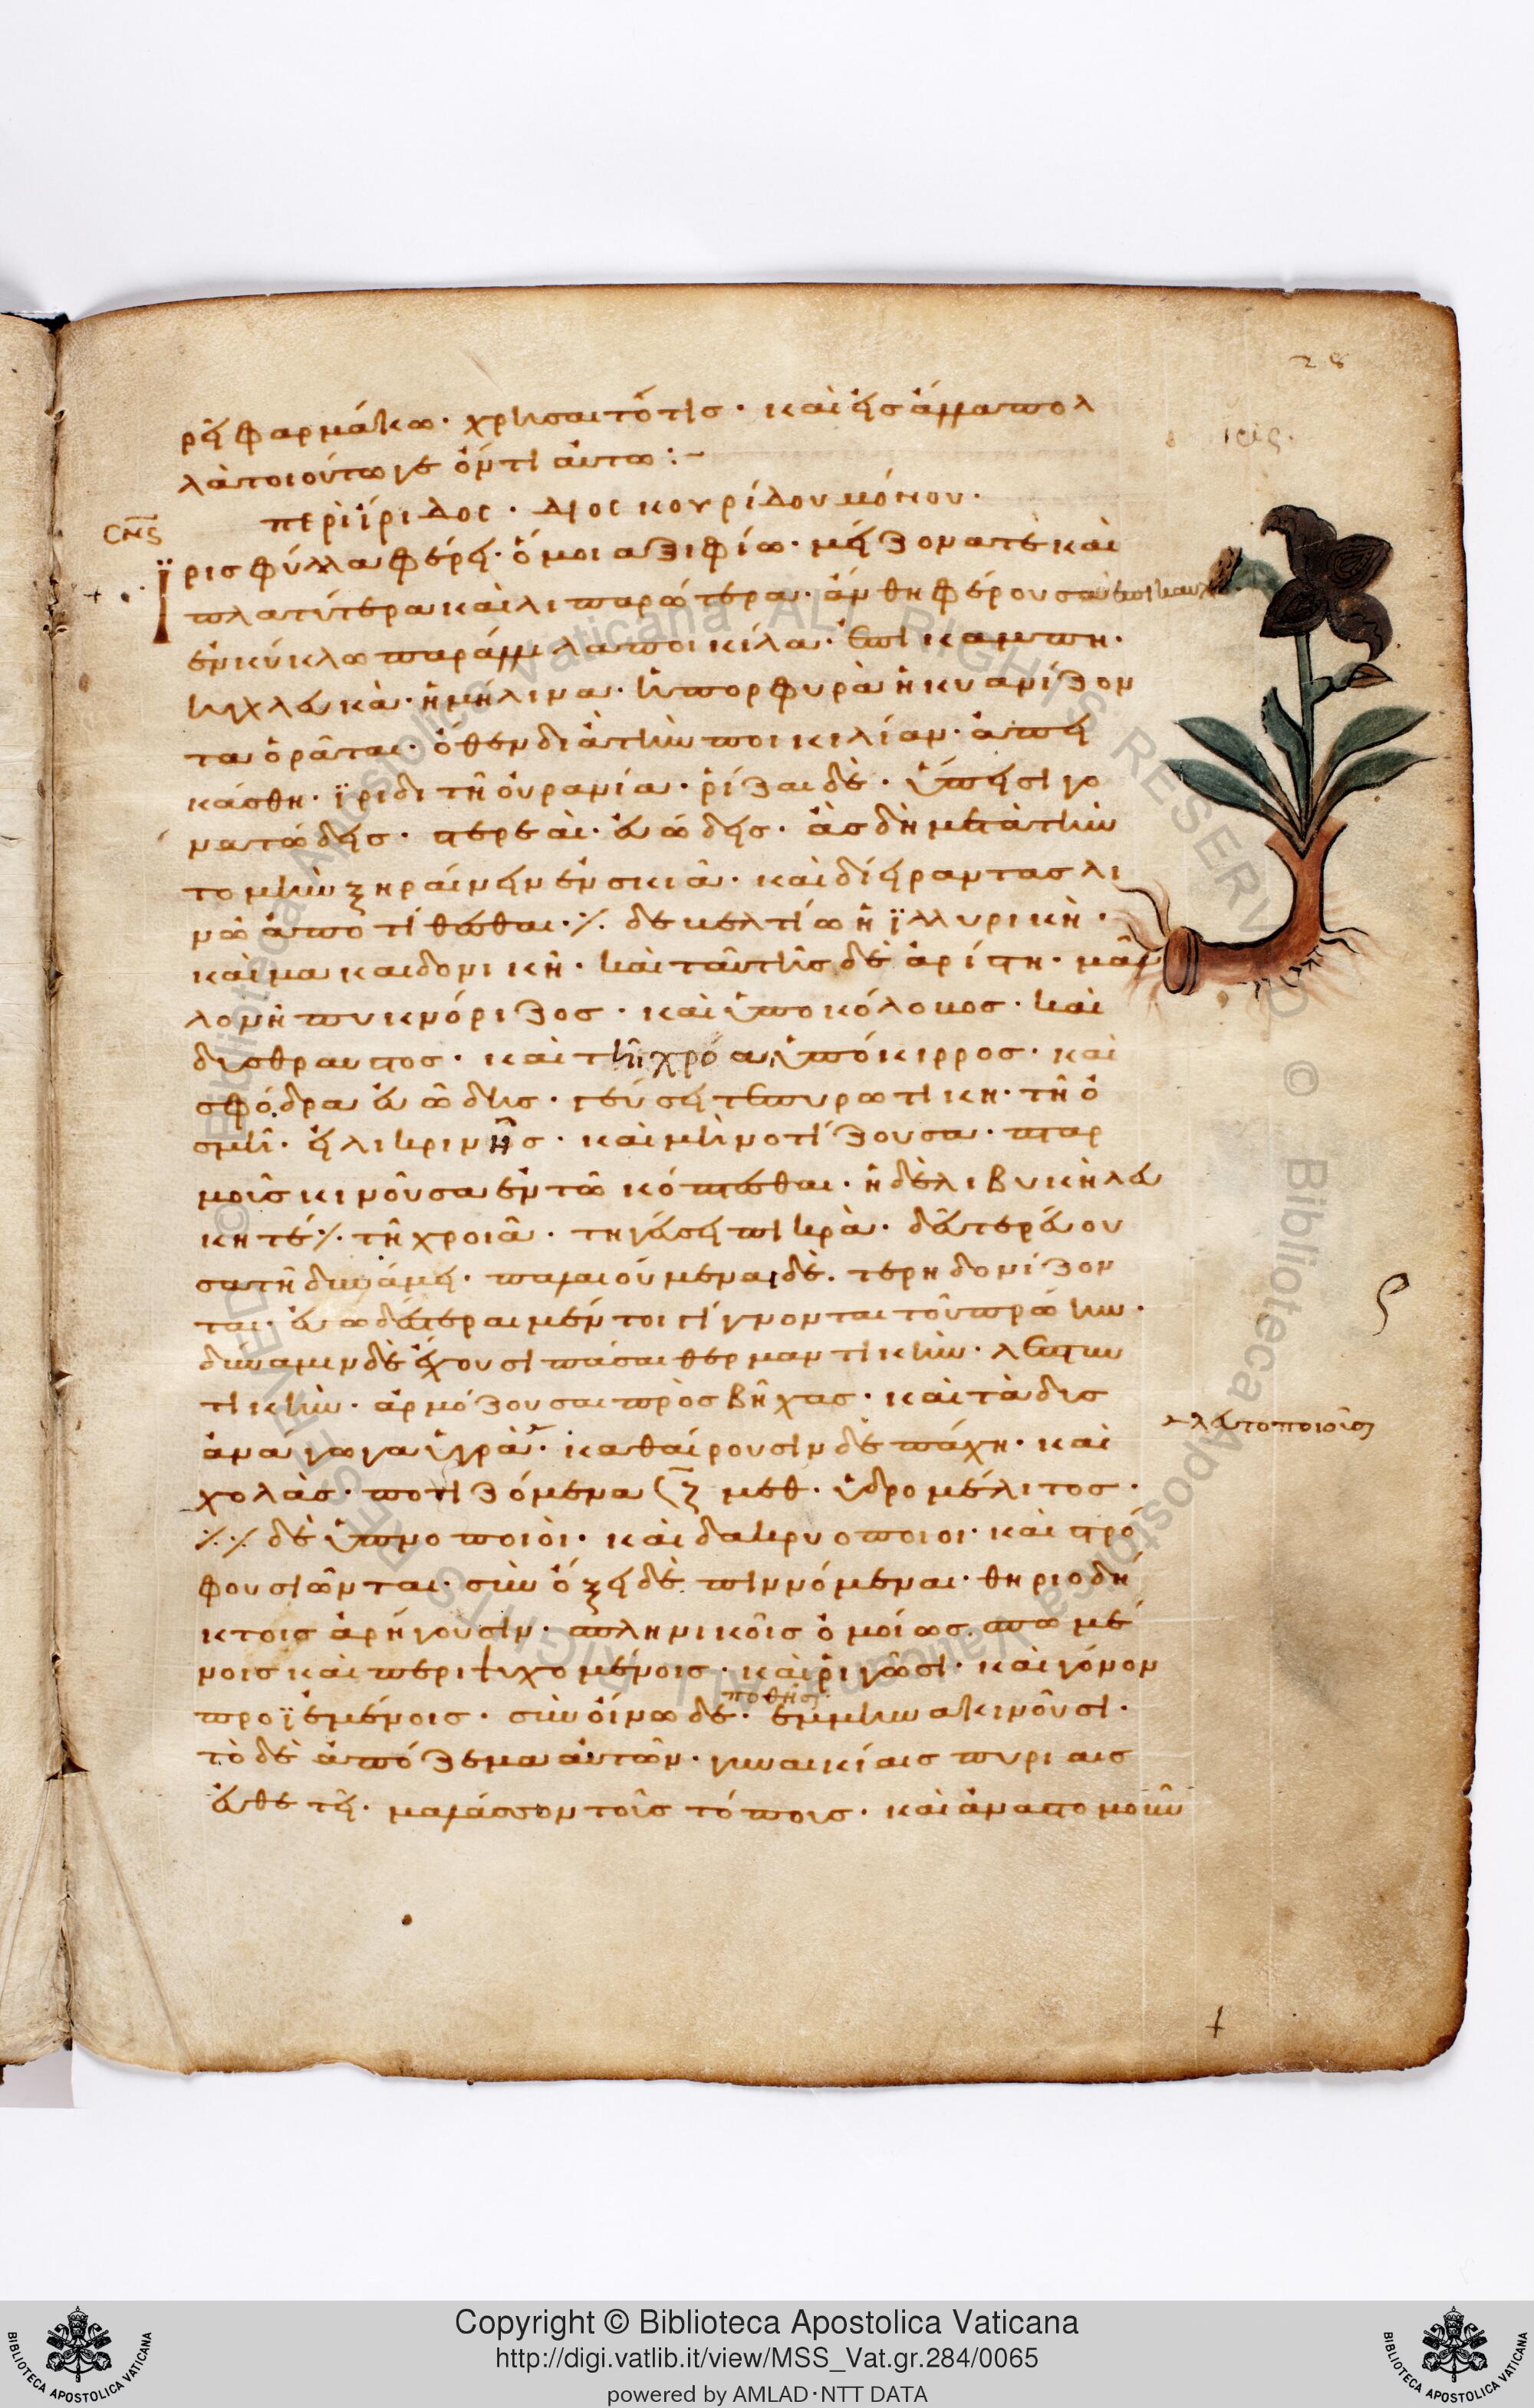 28
ρει φαρμάκω· χρήσαιτό τις· καὶ εἰς ἄλλα πολ
λὰ ποιοῦτω γε ὄντι αὐτῶ :-
ιρις.
περὶ ἴριδος· διοσκουρίδου μόνου·
ϊρις φύλλα φέρει· ὅμοια ξιφίω· μείζονα τὲ καὶ
πλατύτερα καὶ λιπαρώτερα· ἄνθη φέρουσα
ἐν κύκλω παράλληλα ποικίλα· ἐπικαμπη·
ἢ γλευκὰ· ἢ μήλινα· ἢ πορφυρὰ ἢ κυανίζον
τα ὁρᾶται· ὅθεν διὰ τὴν ποικιλίαν· ἀπει
κάσθη· ἴριδι τῆ οὐρανία· ῥίζαι δὲ· ὕπεισι γο
νατώδεις· στερεαὶ· εὐώδεις· ἃς δὴ μετὰ τὴν
τομὴν ξηραίνειν ἐν σκιᾶ· καὶ διείραντας λι
νῶ ἀποτίθεσθαι· ⁒ δὲ βελτίω ἡ ϊλλυρικὴ·
καὶ μακαιδονικῆ· καὶ ταύτης δὲ ἀρίστη· μᾶλ
λον ἡ πυκνόριζος· καὶ ὑποκόλοβος· καὶ
δύσθραυστος· καὶ τῆ χρόα ὑπόκιρρος· καὶ
σφόδρα εὐώδης· γεύσει τε πυρωτικη· τῆ ὀ
σμῆ· εἰλικρινῆς· καὶ μὴ νοτίζουσα· πταρ
μοῖς κινοῦσα ἐν τῶ κόπτεσθαι· ἡ δὲ λιβυκὴ λευ
κή τέ ⁒ τῆ χροιᾶ· τη γεύσει πικρὰ· δευτερεύου
σα τῆ δυνάμει· παλαιούμεναι δὲ· τερηδονίζον
ται· εὐωδέστεραι μέντοι γίγνονται τοῦ πρώην·
δυναμιν δὲ ἔχουσι πάσαι θερμαντικὴν· λεπτυν
τικὴν· ἁρμόζουσαι πρὸς βῆχας· καὶ τὰ δυσ
ἀναγωγα ὑγρὰ· καθαίρουσιν δὲ πάχη· καὶ
χολὰς· ποτιζόμενα ζ μεθ· ὑδρομέλιτος·
⁒ ⁒ δὲ ὑπνοποιὸι· καὶ δακρυοποιοι· καὶ στρό
φους ἰῶνται· σὺν ὄξει δὲ πιννόμεναι· θηριοδή
κτοις ἀρήγουσιν· σπληνικοῖς ὁμοίως σπωμέ
νοις καὶ περιψυχομένοις· καὶ ῥιγῶσι· καὶ γόνον
προϊεμένοις· σὺν οἴνω δὲ· ποθεῖσαι ἔμμηνα κινοῦσι·
τὸ δὲ ἀπόζεμα αὐτῶν· γυναικίαις πυρίαις
εὐθετεῖ· μαλάσσον τοῖς τόποις· καὶ ἀναστομοῦν
Copyright © Biblioteca Apostolica Vaticana
http://digi.vatlib.it/view/MSS_Vat.gr.284/0065
powered by AMLAD·NTT DATA
BIBLIOTECA APOSTOLICA VATICANA
BIBLIOTECA APOSTOLICA VATICANA